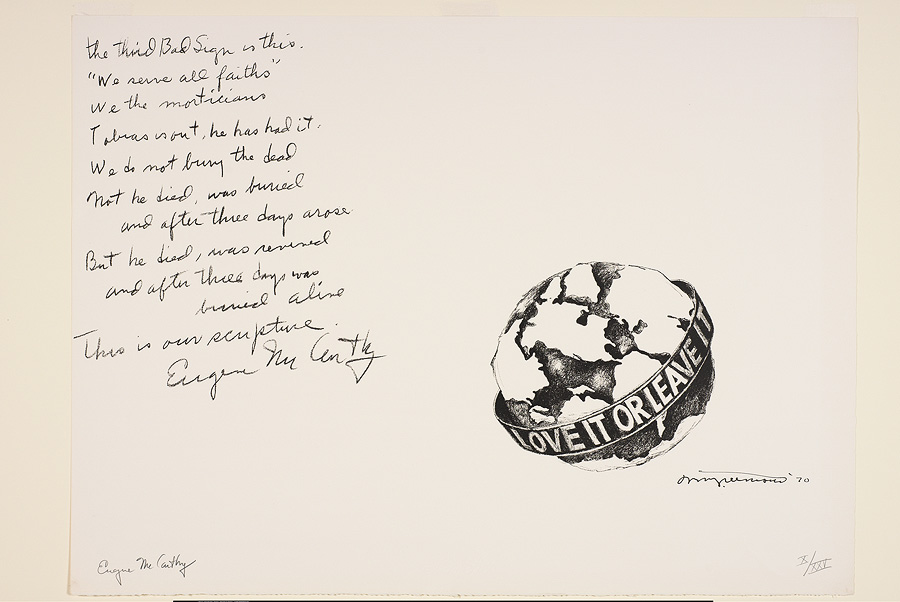 the third Bad Sign is this.
"We serve all faiths"
We the morticians
Tobias is out, he has had it.
We do not bury the dead
Not he died, was buried
and after three days arose
But he died, was revived
and after three days was
buried alive
This is our scripture.
Eugene McCarthy
LOVE IT OR LEAVE IT
'70
Eugene McCarthy
IX/XXX